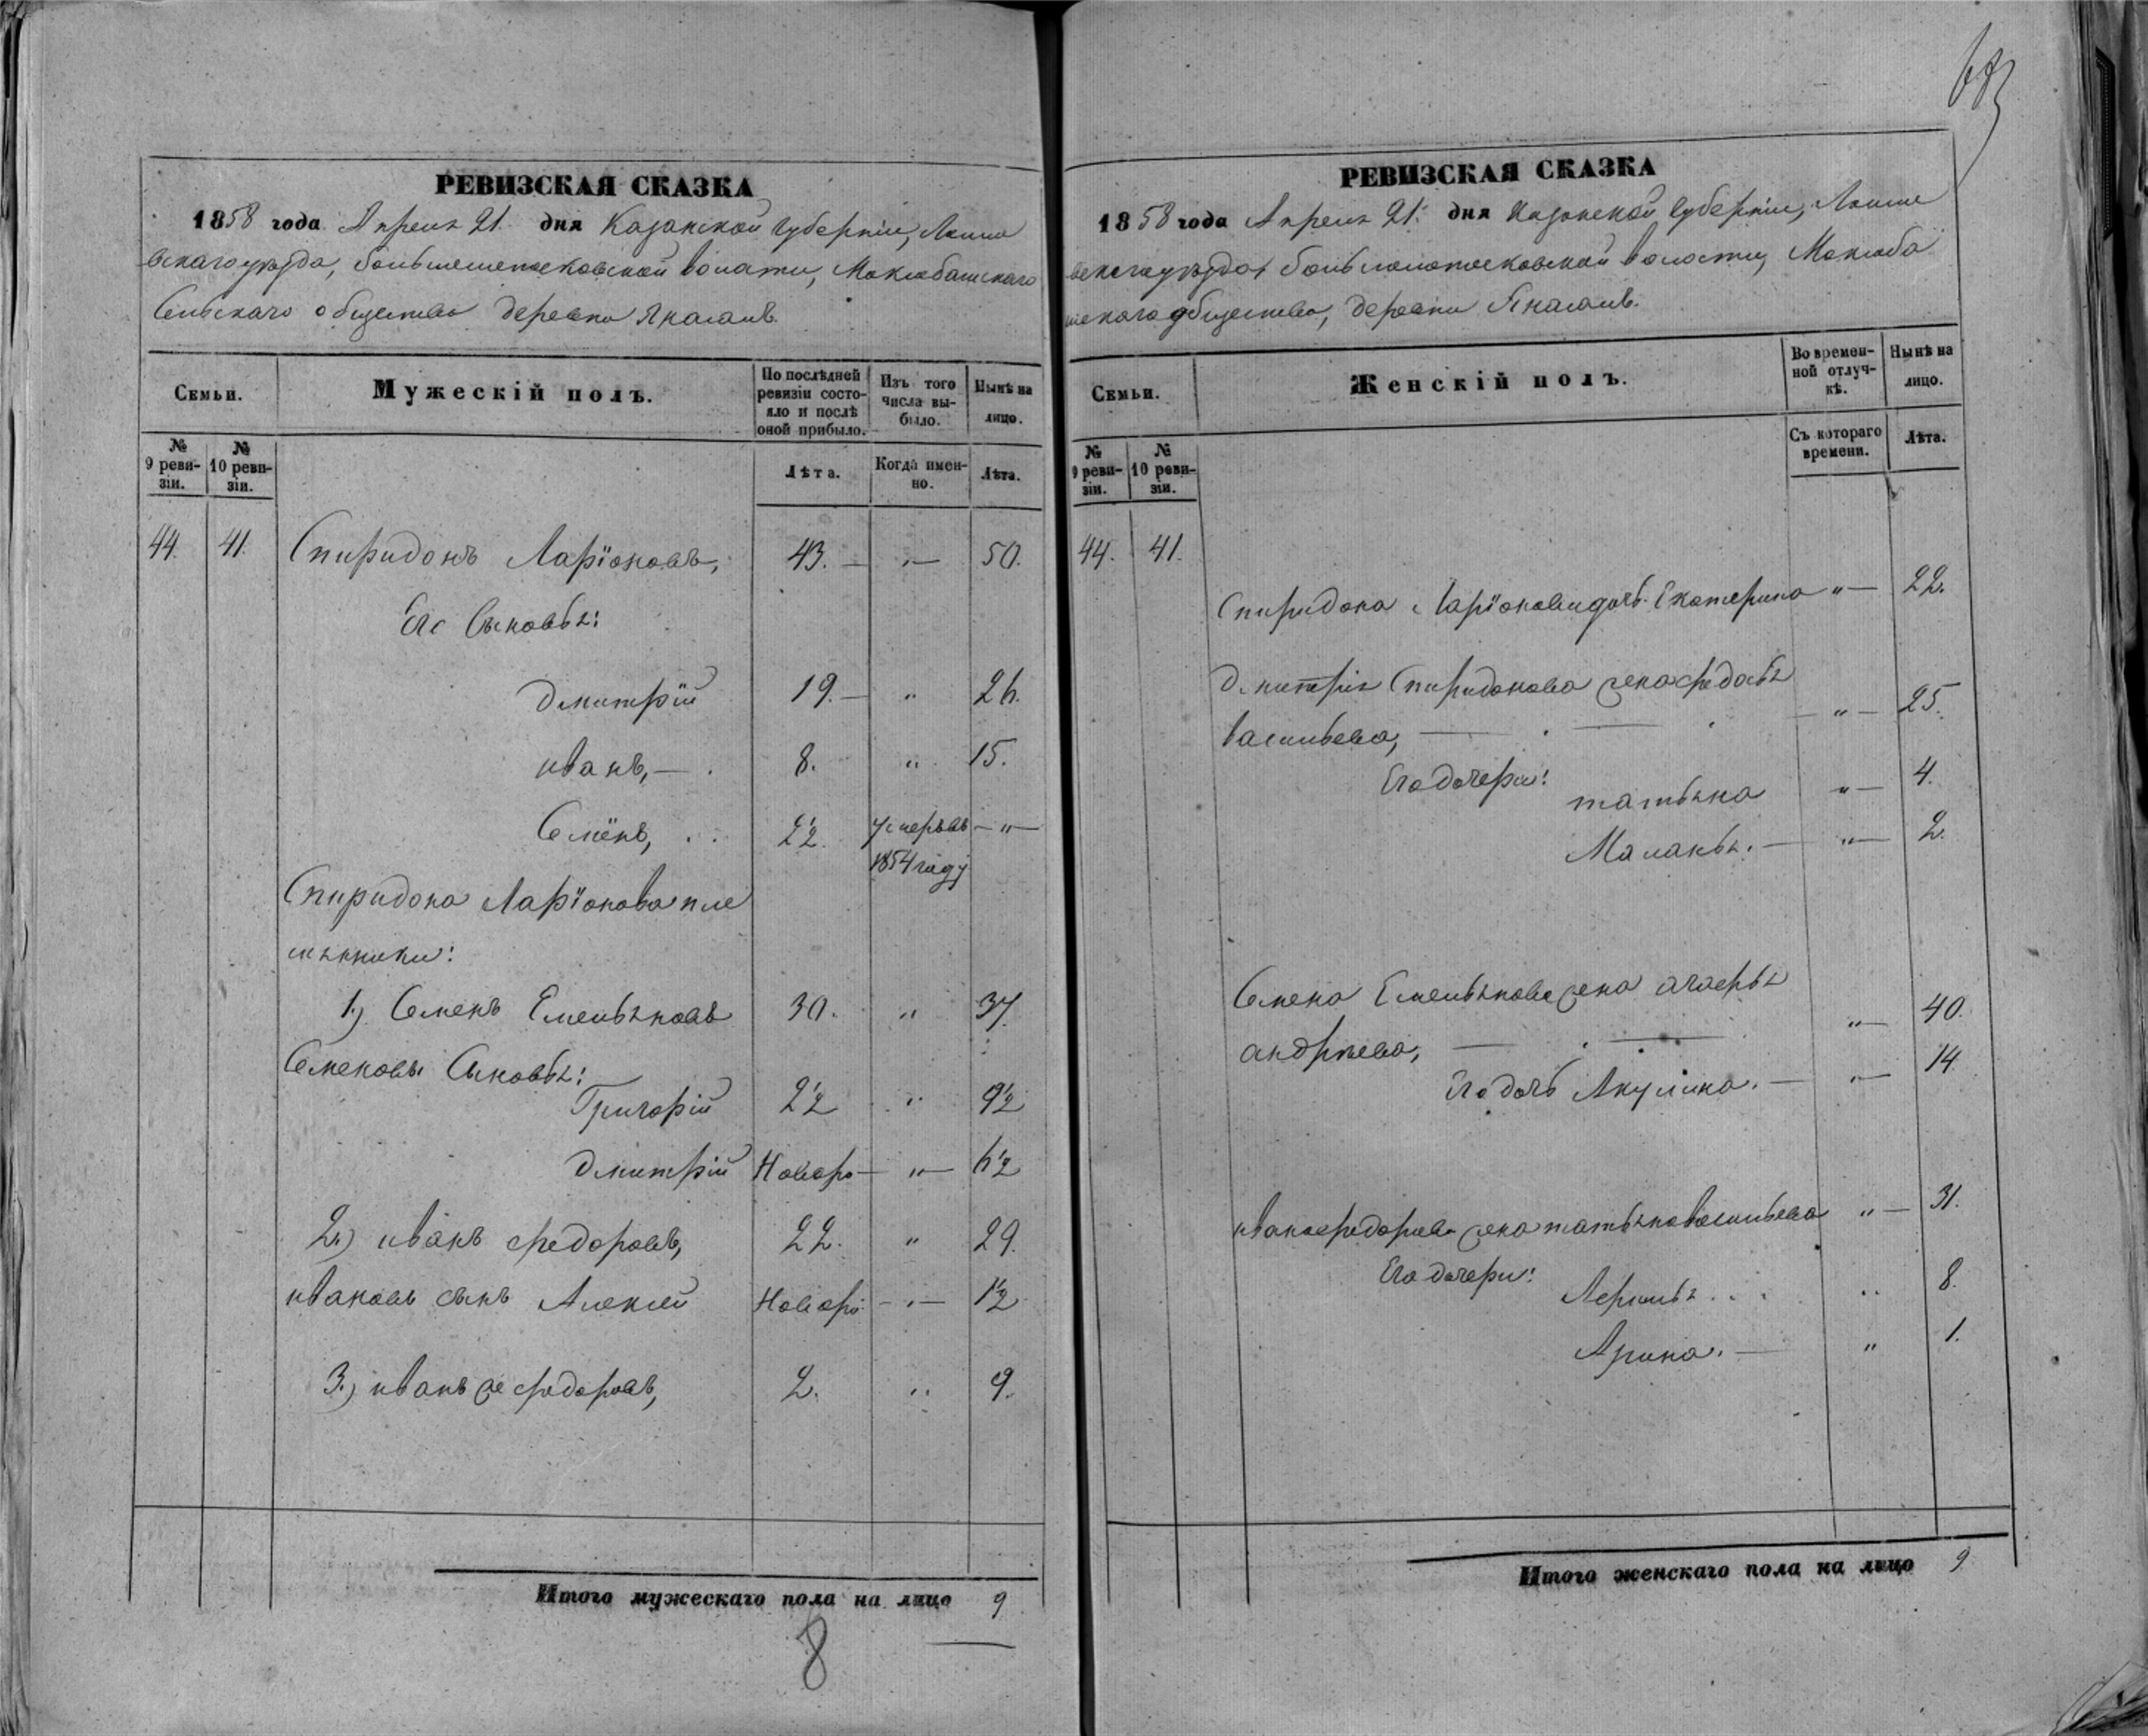 РЕВИЗСКАЯ СКАЗКА
1858 года Апреля 21 дня Казанской губерніи, Лаише
вскаго уѣзда, волости,
Сельскаго общества деревни
Семьи.
Мужескій полъ.
По послѣдней ревизіи состояло и послѣ оной прибыло.
Изъ того числа выбыло.
Нынѣ на лицо.
№ 9 ревизіи.
№ 10 ревизіи.
Лѣта.
Когда именно.
Лѣта.
44. 41. Спиридонъ Ларіоновъ, 43. — „ — 50.
Его Сыновья:
Дмитрій 19. — „ 26.
иванъ, — . 8. „ 15.
Семёнъ, . . 1/2 умеръ въ — „ —
1854 году
Спиридона Ларіонова пле
мянники:
1.) Семенъ Емельяновъ 30. „ 37.
Семеновы Сыновья:
Григорій 2 1/2 „ 9 1/2
Дмитрій Новоро — „ — 6 1/2
2.) иванъ федоровъ, 22. „ 29.
ивановъ сынъ Алексей Новоро — „ — 1/2
3.) иванъ же федоровъ, 2. „ 9.
Итого мужескаго пола на лицо 9
8
РЕВИЗСКАЯ СКАЗКА
1858 года Апреля 21. дня Казанской губерніи, Лаише
вскаго уѣзда, волости,
общества, деревни
Семьи.
Женскій полъ.
Во временной отлучкѣ.
Нынѣ на лицо.
№ 9 ревизіи.
№ 10 ревизіи.
Съ котораго времени.
Лѣта.
44. 41.
Спиридона Ларіонова дочь Екатерина „ — 22.
Дмитрія Спиридонова жена федосья
васильева, — . — . — „ — 25.
Его дочери:
татьяна „ — 4.
Маланья. — „ — 2.
Семена Емельянова жена
андрѣева, — . — „ — 40.
Его дочь Акулина. — „ — 14
ивана федорова жена татьяна васильева „ — 31.
Его дочери:
. . . „ 8.
Арина. — „ 1.
Итого женскаго пола на лицо 9